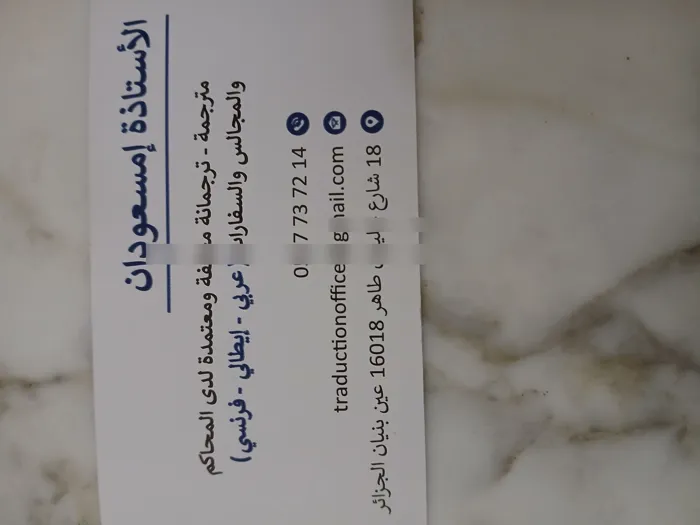 الأستاذة إمسعودان
مترجمة - ترجمانة ومعتمدة لدى المحاكم
والمجالس والسفارات (عربي - إيطالي - فرنسي)
7 73 72 14
traductionoffice
18 شارع طاهر 16018 عين بنيان الجزائر